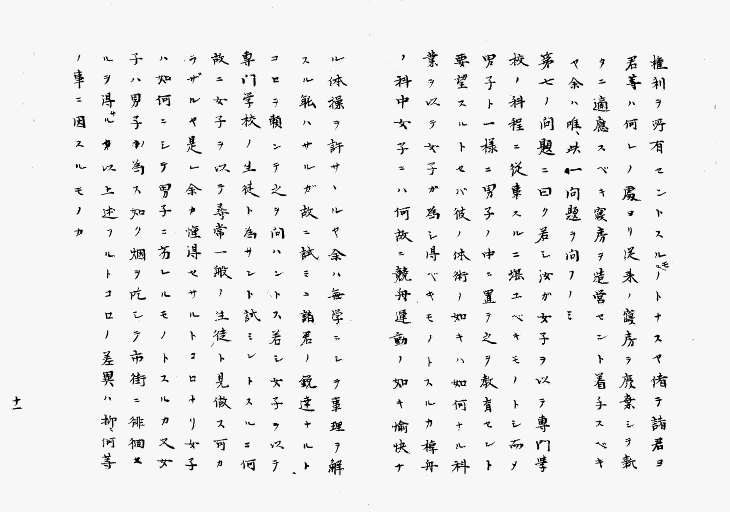 権利ヲ所有セントスルモノトナスヤ偖テ諸君ヨ
君等ハ何レノ處ヨリ従来ノ寝房ヲ廃棄シテ新
タニ適應スベキ寝房ヲ造営セント着手スベキ
ヤ余ハ唯此一問題ヲ問フノミ
第七ノ問題ニ曰ク若シ汝ガ女子ヲ以テ専門學
校ノ科程ニ從事スルニ堪エベキモノトシ而メ
男子ト一様ニ男子ノ中ニ置テ之ヲ教育セント
要望スルトセバ彼ノ体術ノ如キハ如何ナル科
業ヲ以テ女子ガ為シ得ベキモノトスルカ棹舟
ノ科中女子ニハ何故ニ競舟運動ノ如キ愉快ナ
ル体操ヲ許サヽルヤ余ハ無学ニシテ事理ヲ解
スル能ハサルガ故ニ試ミニ諸君ノ鋭達ナルト
コロヲ頼ンテ之ヲ問ハントス若シ女子ヲ以テ
専門学校ノ生徒ト為サント試ミントスルニ何
故ニ女子ヲ以テ尋常一般ノ生徒ト見做ス可カ
ラザルヤ是レ余カ悟得セサルトコロナリ女子
ハ如何ニシテ男子ニ劣レルモノトスルカ又女
子ハ男子ノ為ス如ク烟ヲ吃シテ市街ニ徘徊セ
ルヲ得サルカ以上述フルトコロノ差異ハ抑何等
ノ事ニ因スルモノカ
十一